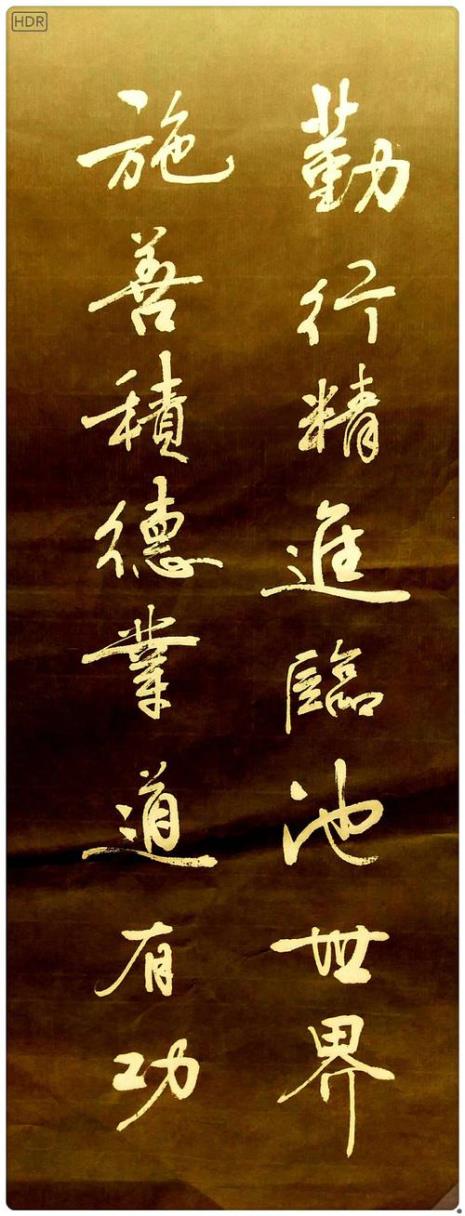 HDR
勤行精進臨池世界
施善積德業道有功